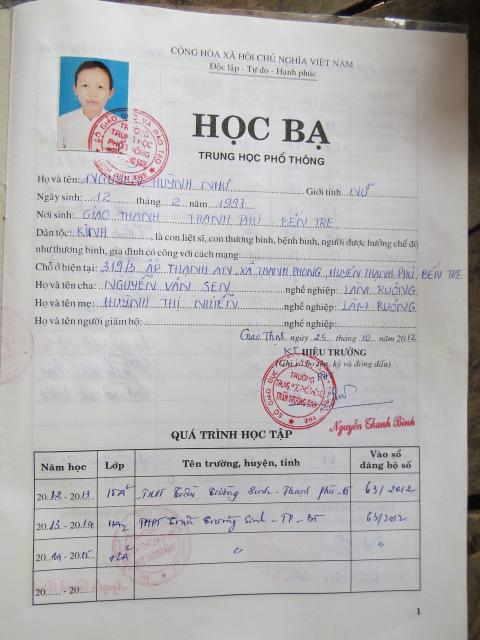 CỘNG HÒA XÃ HỘI CHỦ NGHĨA VIỆT NAM
Độc lập - Tự do - Hạnh phúc
HỌC BẠ
TRUNG HỌC PHỔ THÔNG
Họ và tên: NGUYỄN HUỲNH NHƯ Giới tính: NỮ
Ngày sinh: 12 tháng 2 năm 1997
Nơi sinh: GIAO THẠNH THẠNH PHÚ BẾN TRE
Dân tộc: KINH, là con liệt sĩ, con thương binh, bệnh binh, người được hưởng chế độ
như thương binh, gia đình có công với cách mạng:
Chỗ ở hiện tại: 319/3 ẤP THẠNH AN, XÃ THẠNH PHONG, HUYỆN THẠNH PHÚ BẾN TRE
Họ và tên cha: NGUYỄN VĂN SEN nghề nghiệp: LÀM RUỘNG
Họ và tên mẹ: HUỲNH THỊ NHIÊN nghề nghiệp: LÀM RUỘNG
Họ và tên người giám hộ: nghề nghiệp:
ngày 25 tháng 10 năm 2012
KT HIỆU TRƯỞNG
(Ghi rõ họ tên, ký và đóng dấu)
TRƯỜNG
TRUNG HỌC PHỔ THÔNG
TRẦN TRƯỜNG SINH
Nguyễn Thanh Bình
QUÁ TRÌNH HỌC TẬP
Năm học Lớp Tên trường, huyện, tỉnh Vào sổ đăng bộ số
2012 - 2013 10A2 THPT Trần Trường Sinh - Thạnh phú - BT 63/2012
2013 - 2014 11A2 THPT Trần Trường Sinh - TP - BT 63/2012
2014 - 2015 12A2 " "
20...... - 20......
1